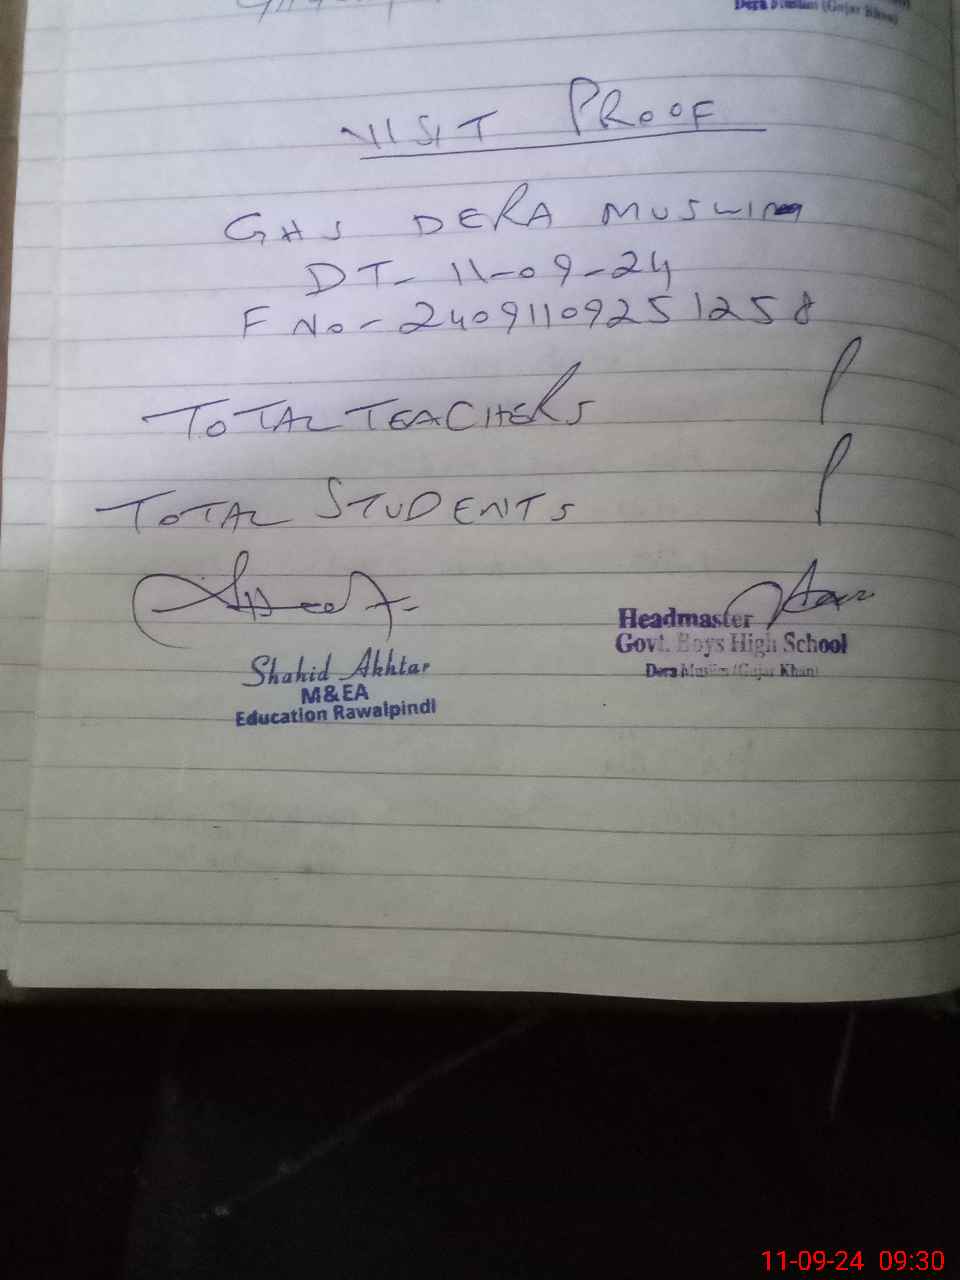 Dera Muslim (Gujar Khan)
VISIT PROOF
GHS DERA MUSLIM
DT- 11-09-24
F No- 24091109251258
TOTAL TEACHERS
TOTAL STUDENTS
Headmaster
Govt. Boys High School
Dera Muslim (Gujar Khan)
Shahid Akhtar
M&EA
Education Rawalpindi
11-09-24 09:30